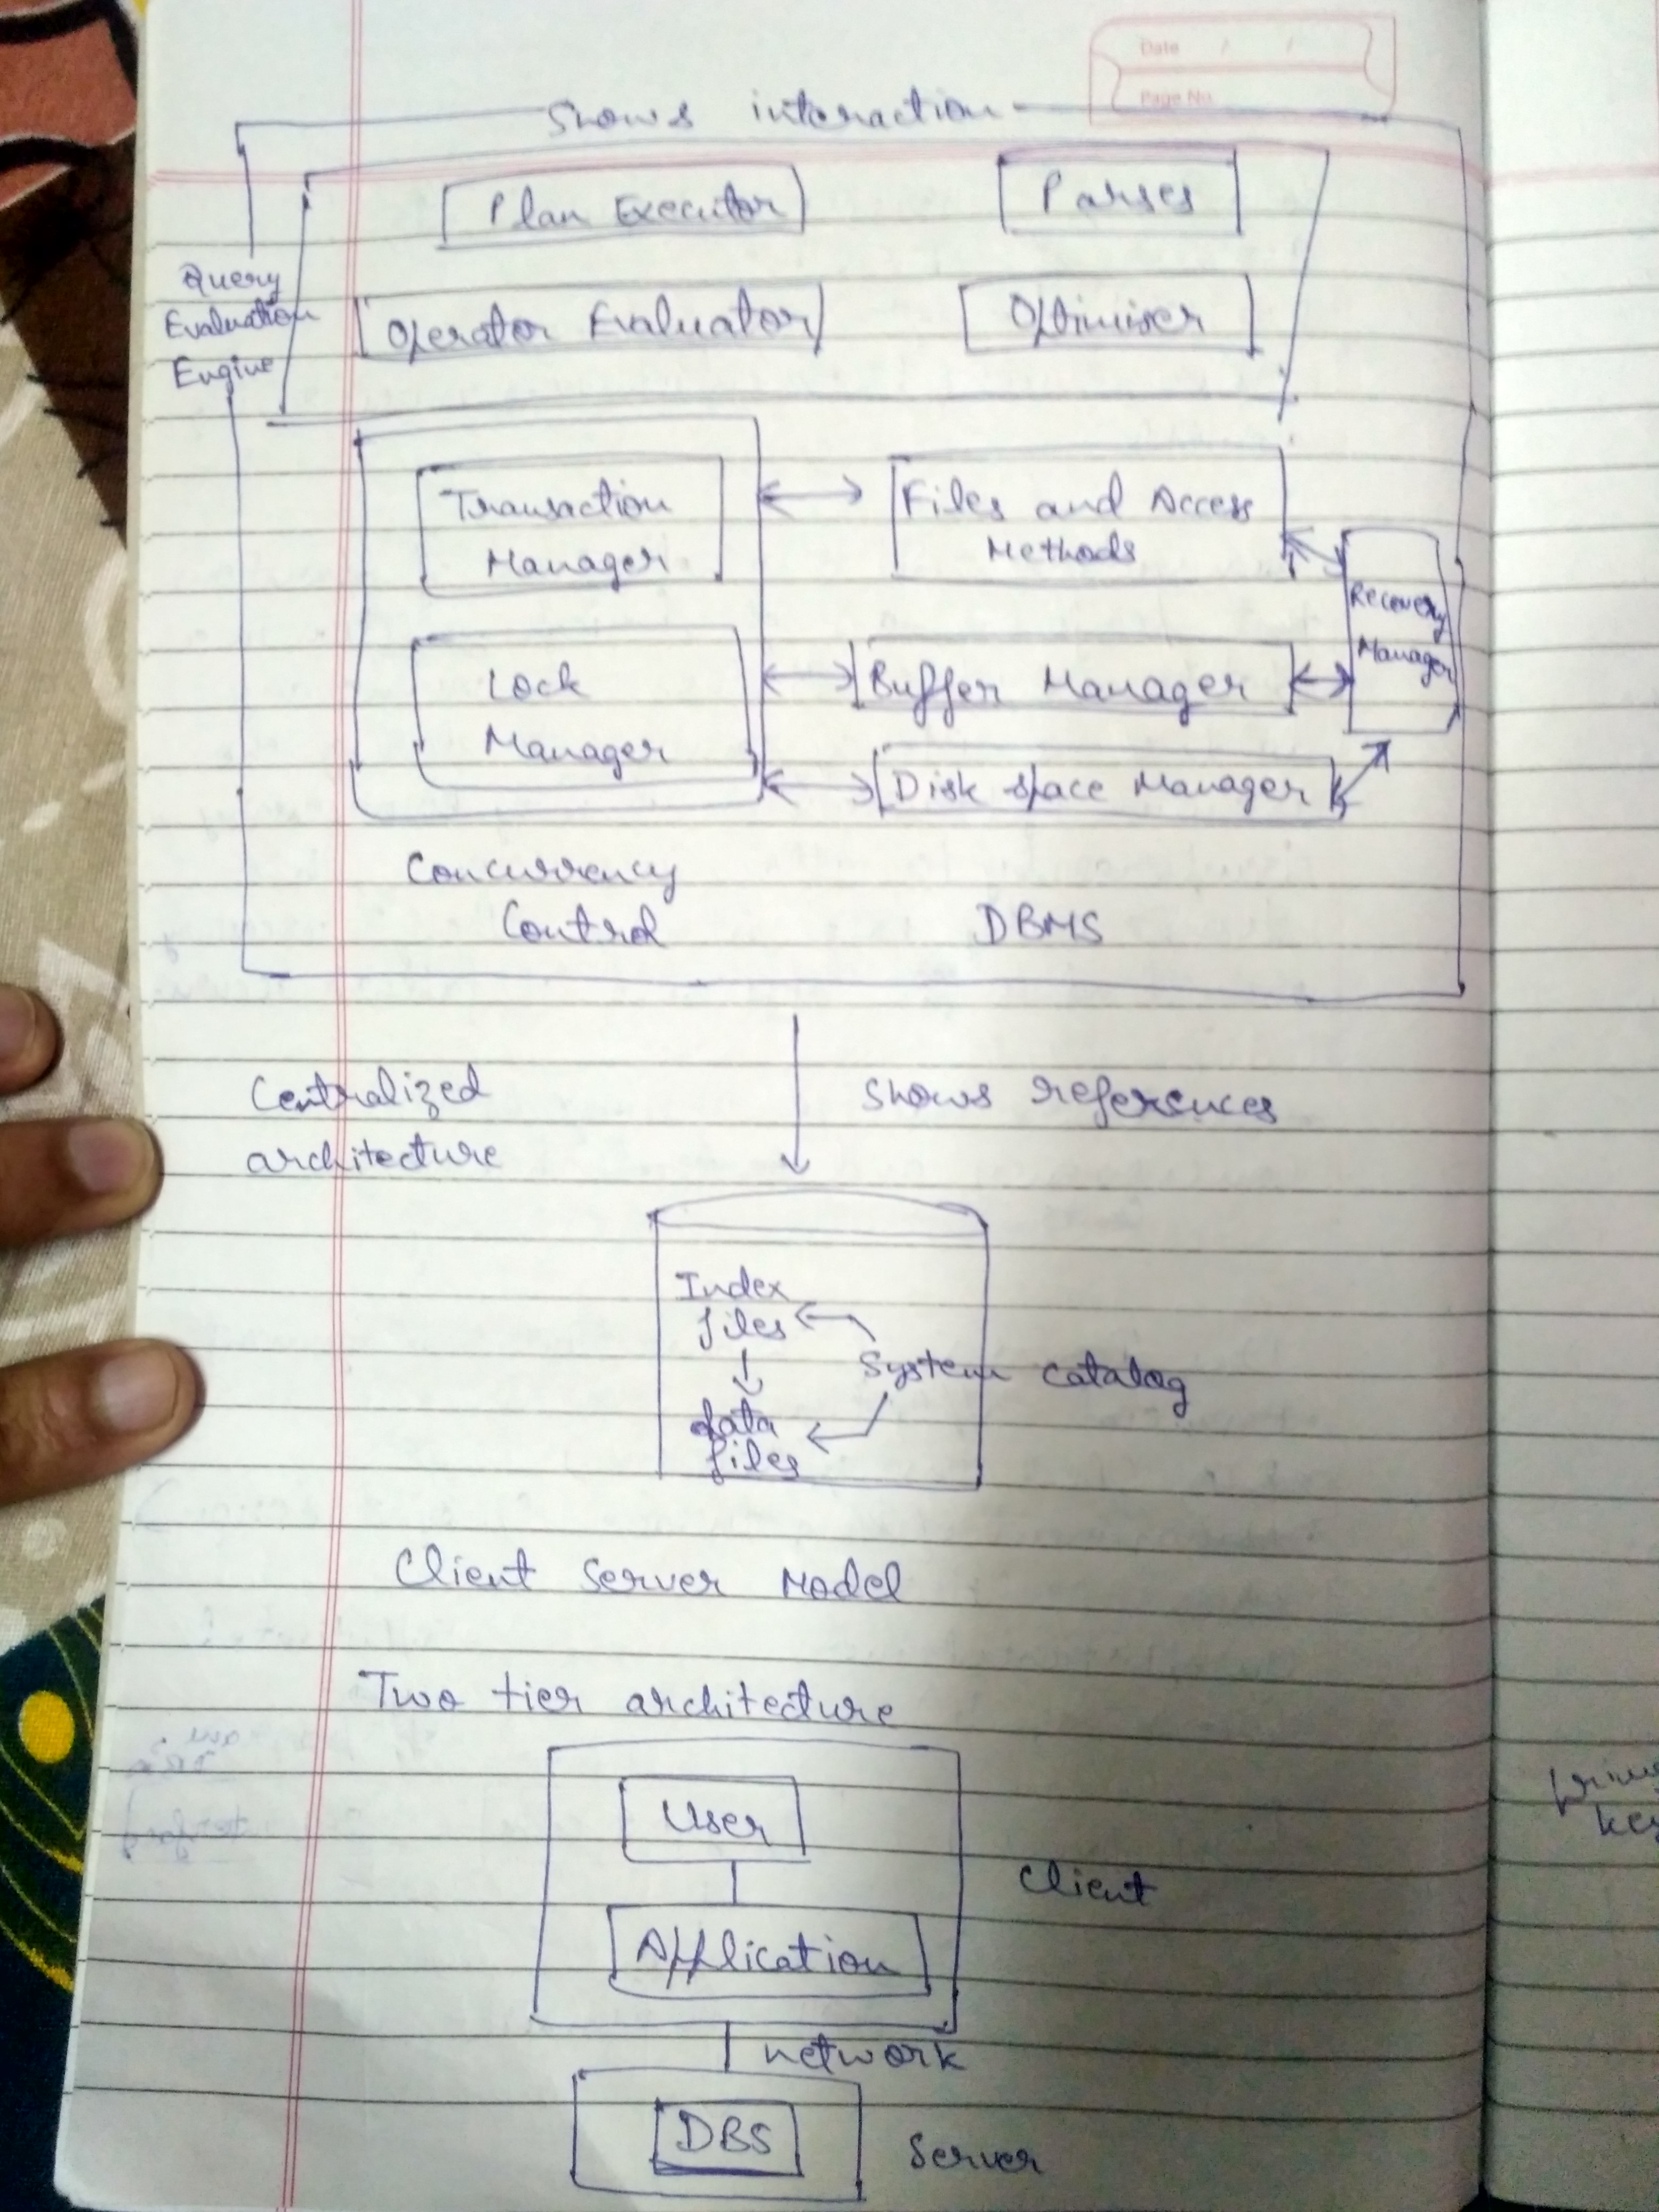 Date / /
Page No.
Shows interaction
Plan Executor
Parses
Query
Evaluation
Engine
Operator Evaluator
Optimiser
Transaction
Manager
Files and Access
Methods
Recovery
Manager
Lock
Manager
Buffer Manager
Disk space Manager
Concurrency
Control
DBMS
Centralized
architecture
Shows references
Index
files
System catalog
data
files
Client Server Model
Two tier architecture
User
Client
Application
network
DBS
Server